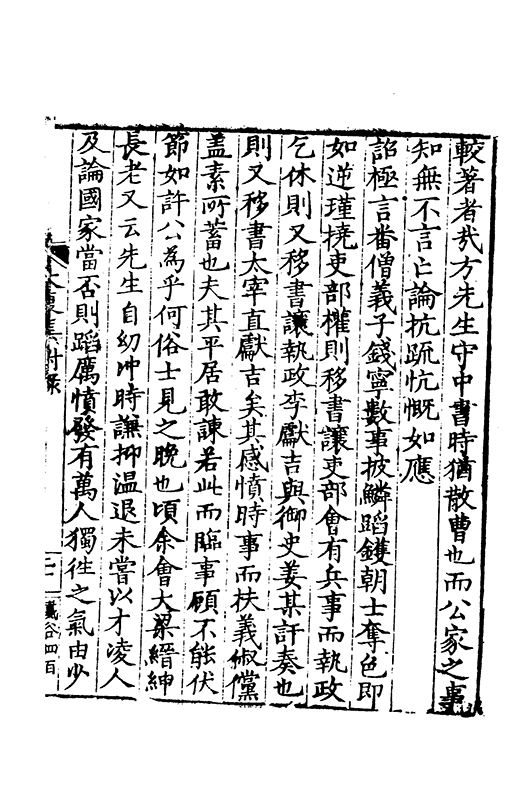 較著者㦲方先生守中書時猶散曹也而公家之事
知無不言亡論抗疏忼慨如應
詔極言畨僧義子錢寧數事披鱗蹈鑊朝士奪色即
如逆瑾撓吏部權則移書讓吏部會有兵事而執政
乞休則又移書讓執政李獻吉與御史姜某訐奏也
則又移書太宰直獻吉矣其感憤時事而扶義俶儻
盖素所蓄也夫其平居敢諫若此而臨事顧不能伏
節如許公為乎何俗士見之晚也頃余會大梁縉紳
長老又云先生自幼冲時謙抑温退未嘗以才凌人
及論國家當否則蹈厲憤發有萬人獨徃之氣由少
大復集附錄
四百